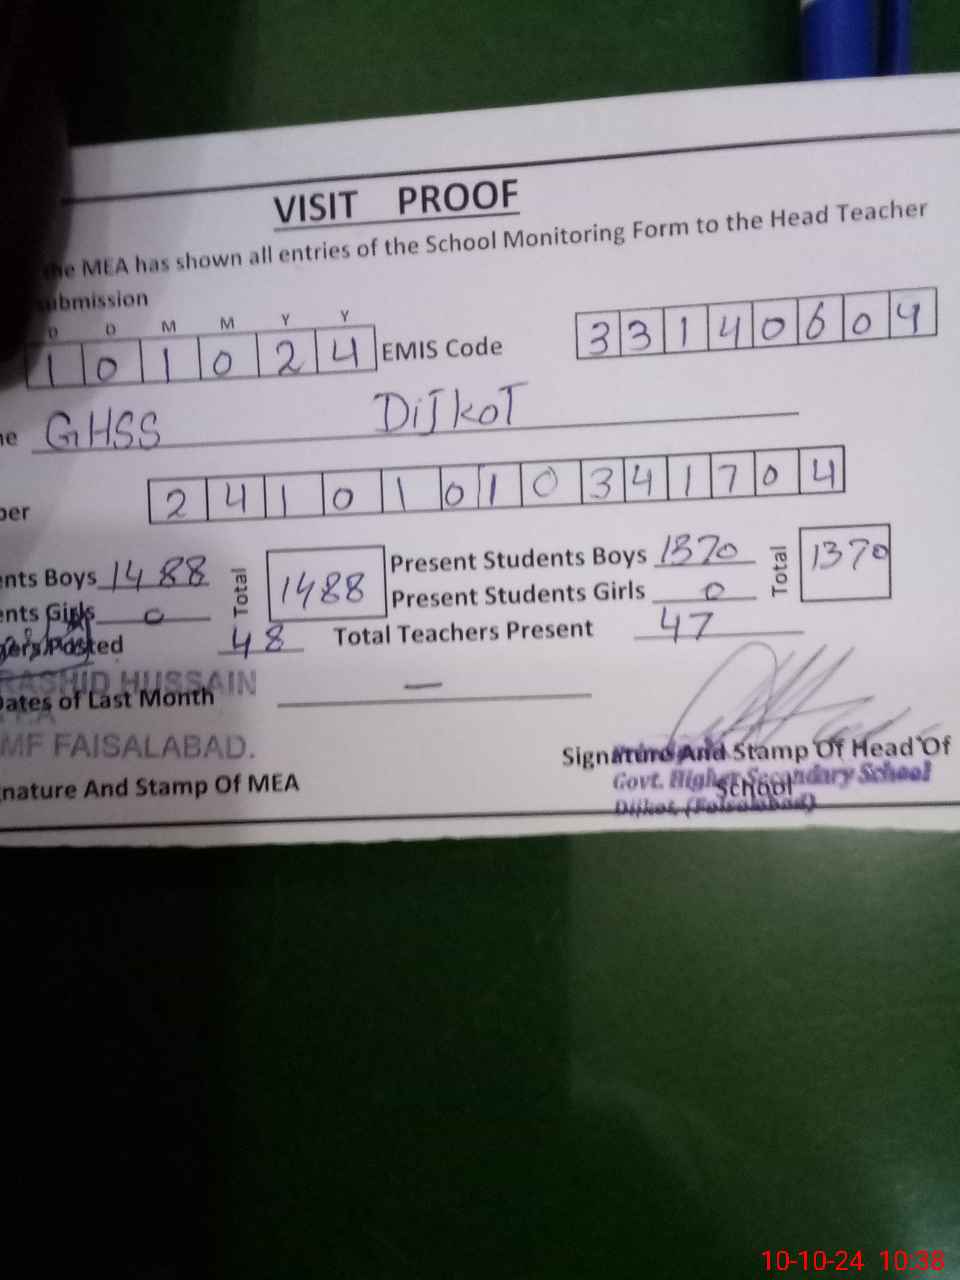 VISIT PROOF
the MEA has shown all entries of the School Monitoring Form to the Head Teacher
submission
D D M M Y Y
1 0 1 0 2 4 EMIS Code 3 3 1 4 0 6 0 4
GHSS DIJKOT
2 4 1 0 1 0 1 0 3 4 1 7 0 4
Boys 1488 Total 1488 Present Students Boys 1370 Total 1370
Girls 0 Present Students Girls 0
Posted 48 Total Teachers Present 47
RASHID HUSSAIN
Dates of Last Month —
MEA
MF FAISALABAD.
Signature And Stamp Of Head Of
School
Govt. Higher Secondary School
Dijkot, (Faisalabad)
And Stamp Of MEA
10-10-24 10:38